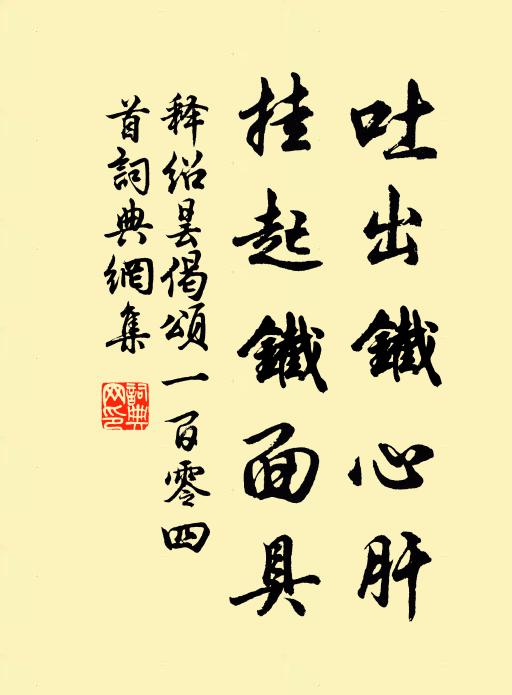 吐出鐵心肝
挂起鐵面具
释绍昙偈頌一百零四
首詞典網集
詞典網印